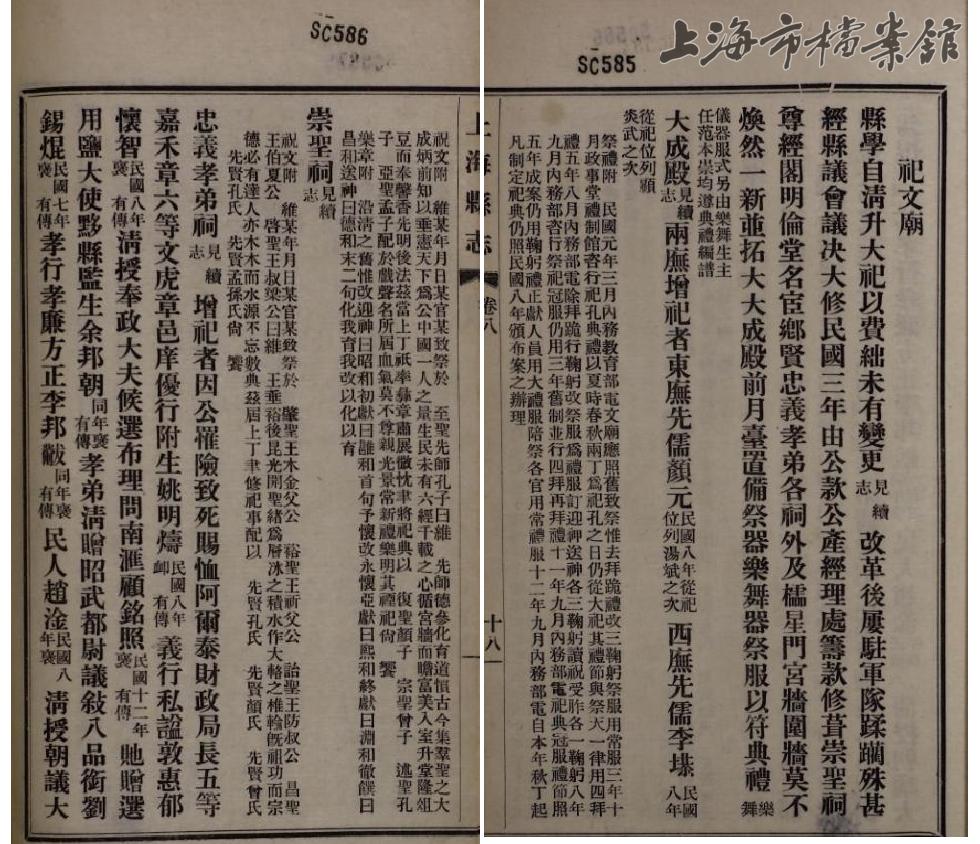 上海市檔案館
SC585
祀文廟
縣學自清升大祀以費絀未有變更見續志改革後屢駐軍隊蹂躪殊甚
經縣議會議决大修民國三年由公款公產經理處籌款修葺崇聖祠
尊經閣明倫堂名宦鄉賢忠義孝弟各祠外及櫺星門宮牆圍牆莫不
煥然一新並拓大大成殿前月臺置備祭器樂舞器祭服以符典禮樂舞
儀器服式另由樂舞生主
任范本崇均遵典禮編譜
大成殿見續志兩廡增祀者東廡先儒顏元民國八年從祀位列湯斌之次西廡先儒李塨民國八年
從祀位列顧
炎武之次
祭禮附　民國元年三月內務教育部電文廟應照舊致祭惟去拜跪禮改三鞠躬祭服用常服三年十
月政事堂禮制館咨行祀孔典禮以夏時春秋兩丁爲祀孔之日仍從大祀其禮節與祭天一律用四拜
禮五年八月內務部電除拜跪行鞠躬改祭服爲禮服訂迎神送神各三鞠躬讀祝受胙各一鞠躬八年
九月內務部咨行祭祀冠服仍用三年舊制並行四拜再拜禮十一年九月內務部電祀典冠服禮節照
五年成案仍用鞠躬禮正獻人員用大禮服陪祭各官用常禮服十二年九月內務部電自本年秋丁起
凡制定祀典仍照民國八年頒布案之辦理
SC586
上海縣志
卷八
十八
祝文附　維某年月日某官某致祭於　至聖先師孔子曰維　先師德參化育道慣古今集羣聖之大
成炳前知以垂憲天下爲公中國一人之量生民未有六經千載之心循宮牆而瞻富美入室升堂隆俎
豆而奉馨香先明後法茲當上丁祇率彝章肅展微忱聿將祀典以　復聖顏子　宗聖曾子　述聖孔
子　亞聖孟子配於戲聲名所屆血氣莫不尊親光景常新禮樂明其禋祀尙　饗
樂章附　沿清之舊惟改迎神曰昭和初獻曰雝和首句予懷改永懷亞獻曰熙和終獻曰淵和徹饌曰
昌和送神曰德和末二句化我育我改以化以育
崇聖祠見續志
祝文附　維某年月日某官某致祭於　肇聖王木金父公　裕聖王祈父公　詒聖王防叔公　昌聖
王伯夏公　啓聖王叔梁公曰維　王垂裕後昆光開聖緒爲層冰之積水作大輅之椎輪旣祖功而宗
德必有達人亦木本而水源不忘數典茲屆上丁聿修祀事配以　先賢孔氏　先賢顏氏　先賢曾氏
先賢孔氏　先賢孟孫氏尙　饗
忠義孝弟祠見續志增祀者因公罹險致死賜恤阿爾泰財政局長五等
嘉禾章六等文虎章邑庠優行附生姚明燽民國八年䘏有傳義行私諡敦惠郁
懷智民國八年褒有傳淸授奉政大夫候選布理問南滙顧銘照民國十二年褒有傳貤贈選
用鹽大使黟縣監生余邦朝同年褒有傳孝弟淸贈昭武都尉議敍八品銜劉
錫焜民國七年褒有傳孝行孝廉方正李邦黻同年褒有傳民人趙淦民國八年褒淸授朝議大